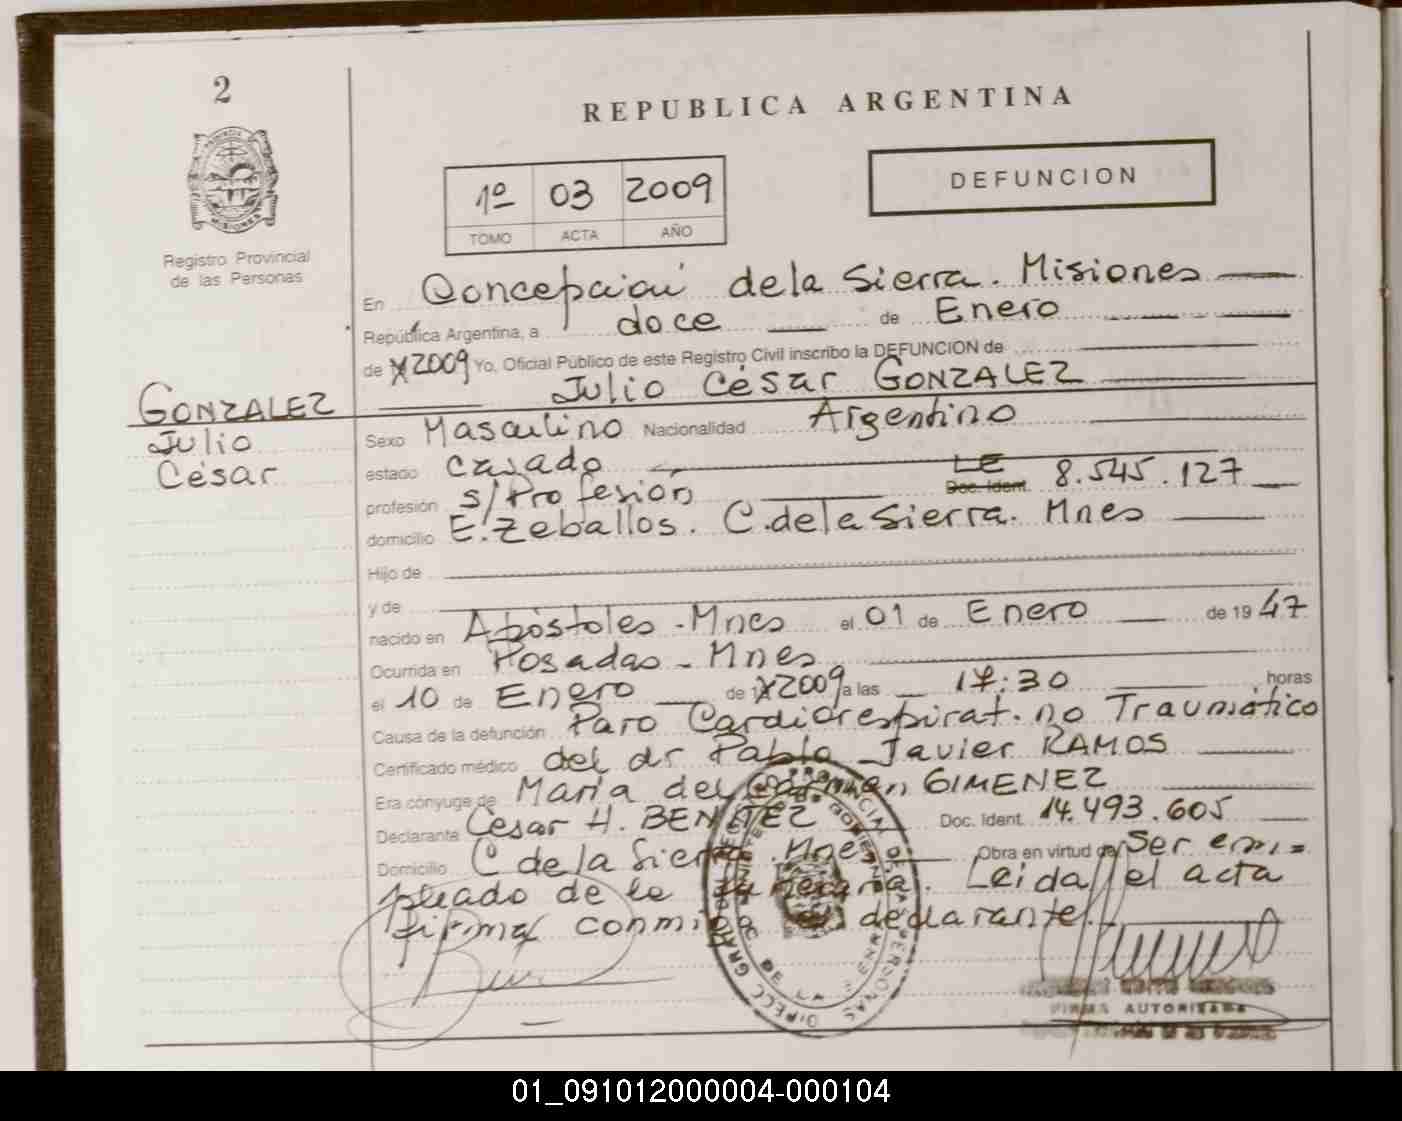 2
REPUBLICA ARGENTINA
DEFUNCION
1º 03 2009
TOMO ACTA AÑO
Registro Provincial
de las Personas
En Concepción de la Sierra. Misiones
República Argentina, a doce de Enero
de 2009 Yo, Oficial Público de este Registro Civil inscribo la DEFUNCION de
Julio César GONZALEZ
GONZALEZ
Julio
César
Sexo Masculino Nacionalidad Argentino
estado casado
profesión s/Profesión LE Doc. Ident. 8.545.127
domicilio E. Zeballos. C. de la Sierra. Mnes
Hijo de
y de
nacido en Apóstoles - Mnes el 01 de Enero de 1947
Ocurrida en Posadas - Mnes
el 10 de Enero de 2009 a las 17:30 horas
Causa de la defunción Paro Cardiorespirat. no Traumático
Certificado médico del dr Pablo Javier RAMOS
Era cónyuge de María del Carmen GIMENEZ
Declarante César H. BENITEZ Doc. Ident. 14.493.605
Domicilio C de la Sierra. Mnes Obra en virtud de Ser em=
pleado de la funeraria. Leida el acta
firma conmigo el declarante.
FIRMA AUTORIZADA
01_091012000004-000104